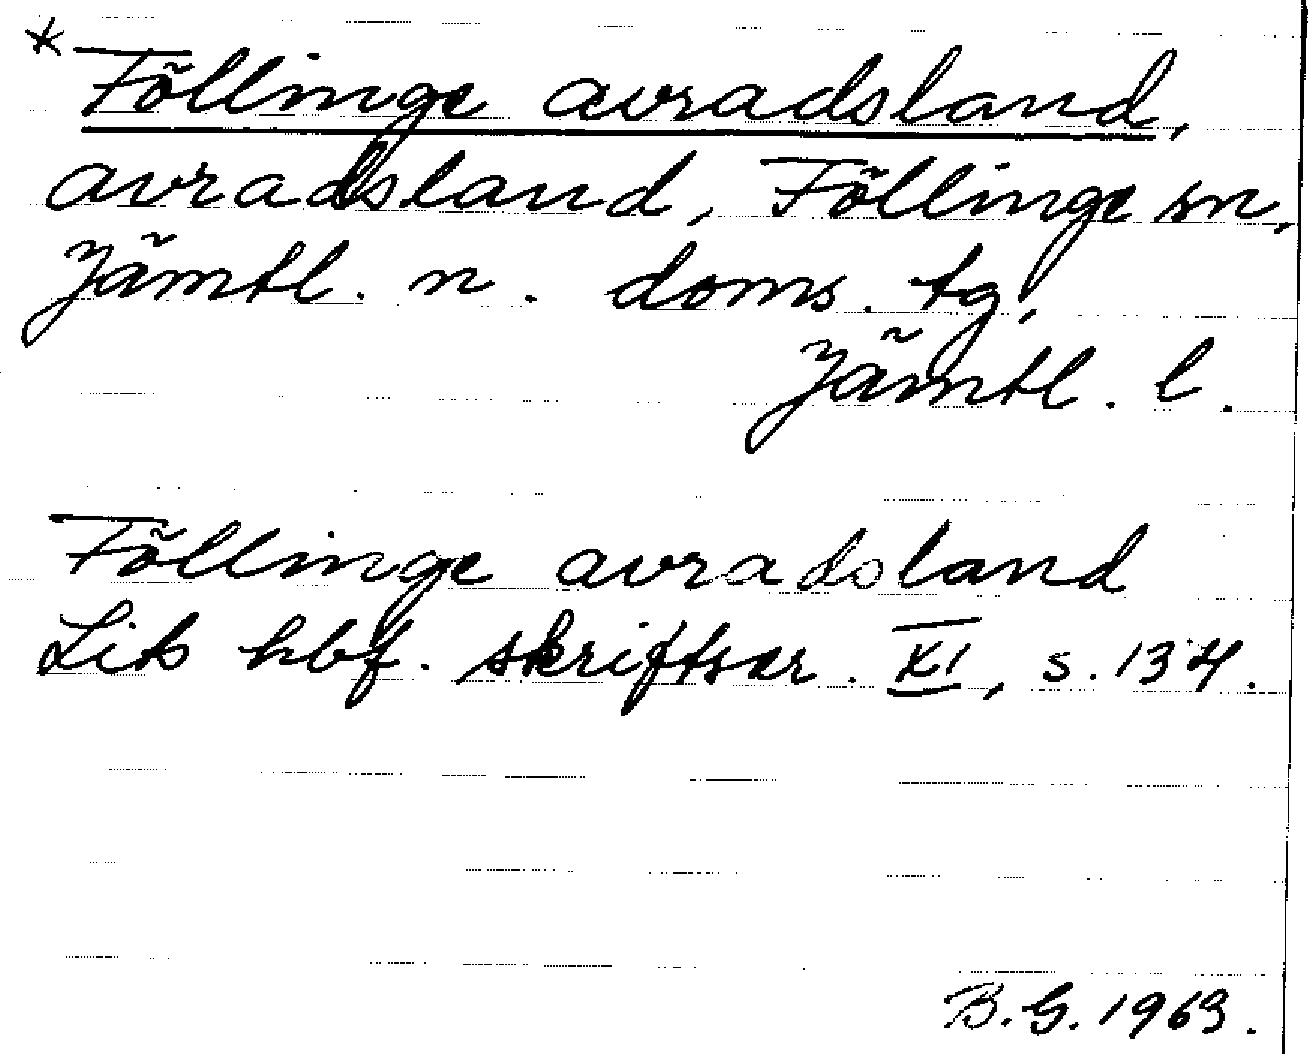 * Föllinge avradsland,
avradsland, Föllinge sn,
Jämtl. n. doms. tg,
Jämtl. l.
Föllinge avradsland
Lits hbf. skriftser. XI, s. 134.
B.G. 1963.